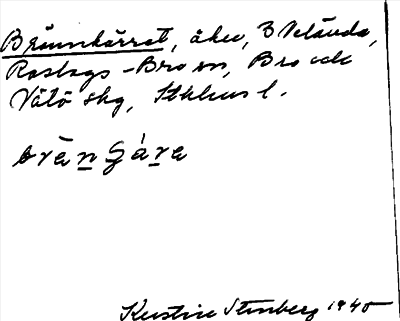 Brännkärret, åker, 3 Veländа,
Roslags-Bro sn, Bro och
Vätö skg, Sthlms l.
brä̀n g̱áṟa
Kerstin Stenberg 1940